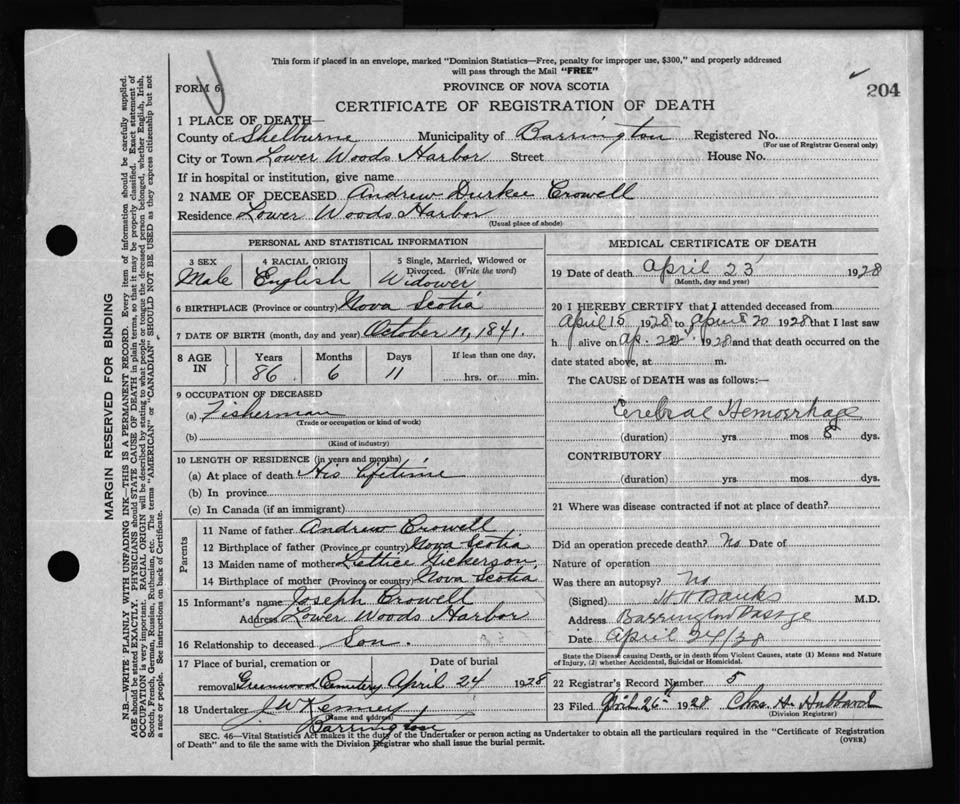 This form if placed in an envelope, marked "Dominion Statistics—Free, penalty for improper use, $300," and properly addressed
will pass through the Mail "FREE"
FORM 6.
PROVINCE OF NOVA SCOTIA
204
CERTIFICATE OF REGISTRATION OF DEATH
1 PLACE OF DEATH—
County of Shelburne Municipality of Barrington Registered No.
(For use of Registrar General only)
City or Town Lower Woods Harbor Street House No.
If in hospital or institution, give name
2 NAME OF DECEASED Andrew Durkee Crowell
Residence Lower Woods Harbor
(Usual place of abode)
MARGIN RESERVED FOR BINDING
N.B.—WRITE PLAINLY WITH UNFADING INK—THIS IS A PERMANENT RECORD. Every item of information should be carefully supplied.
AGE should be stated EXACTLY. PHYSICIANS should STATE CAUSE OF DEATH in plain terms, so that it may be properly classified. Exact statement of
OCCUPATION is very important. RACIAL ORIGIN will be described by stating to what people or race the deceased person belonged, whether English, Irish,
Scotch, French, German, Russian, Ruthenian, etc. The terms "AMERICAN" or "CANADIAN" SHOULD NOT BE USED as they express citizenship but not
a race or people. See instructions on back of Certificate.
PERSONAL AND STATISTICAL INFORMATION
3 SEX
Male
4 RACIAL ORIGIN
English
5 Single, Married, Widowed or
Divorced. (Write the word)
Widower
6 BIRTHPLACE (Province or country) Nova Scotia
7 DATE OF BIRTH (month, day and year) October 11, 1841.
8 AGE
IN
Years
86
Months
6
Days
11
If less than one day,
hrs. or min.
9 OCCUPATION OF DECEASED
(a) Fisherman
(Trade or occupation or kind of work)
(b)
(Kind of industry)
10 LENGTH OF RESIDENCE (in years and months)
(a) At place of death His lifetime
(b) In province
(c) In Canada (if an immigrant)
Parents
11 Name of father Andrew Crowell
12 Birthplace of father (Province or country) Nova Scotia
13 Maiden name of mother Lettice Nickerson,
14 Birthplace of mother (Province or country) Nova Scotia
15 Informant's name Joseph Crowell
Address Lower Woods Harbor
16 Relationship to deceased Son.
17 Place of burial, cremation or Date of burial
removal Greenwood Cemetery April 24 1928
18 Undertaker J W Kenney,
(Name and address)
Barrington
MEDICAL CERTIFICATE OF DEATH
19 Date of death April 23 1928
(Month, day and year)
20 I HEREBY CERTIFY that I attended deceased from
April 15 1928 to April 20 1928 that I last saw
h alive on Ap. 22 1928 and that death occurred on the
date stated above, at m.
The CAUSE of DEATH was as follows:—
Cerebral Hemorrhage
(duration) yrs. mos 8 dys.
CONTRIBUTORY
(duration) yrs. mos dys.
21 Where was disease contracted if not at place of death?
Did an operation precede death? No Date of
Nature of operation
Was there an autopsy? No
(Signed) H H Banks M.D.
Address Barrington Passage
Date April 24/28
State the Disease causing Death, or in death from Violent Causes, state (1) Means and Nature
of Injury, (2) whether Accidental, Suicidal or Homicidal.
22 Registrar's Record Number 5
23 Filed April 26 1928 Chas. H. Hubbard
(Division Registrar)
SEC. 46—Vital Statistics Act makes it the duty of the Undertaker or person acting as Undertaker to obtain all the particulars required in the "Certificate of Registration
of Death" and to file the same with the Division Registrar who shall issue the burial permit.
(OVER)